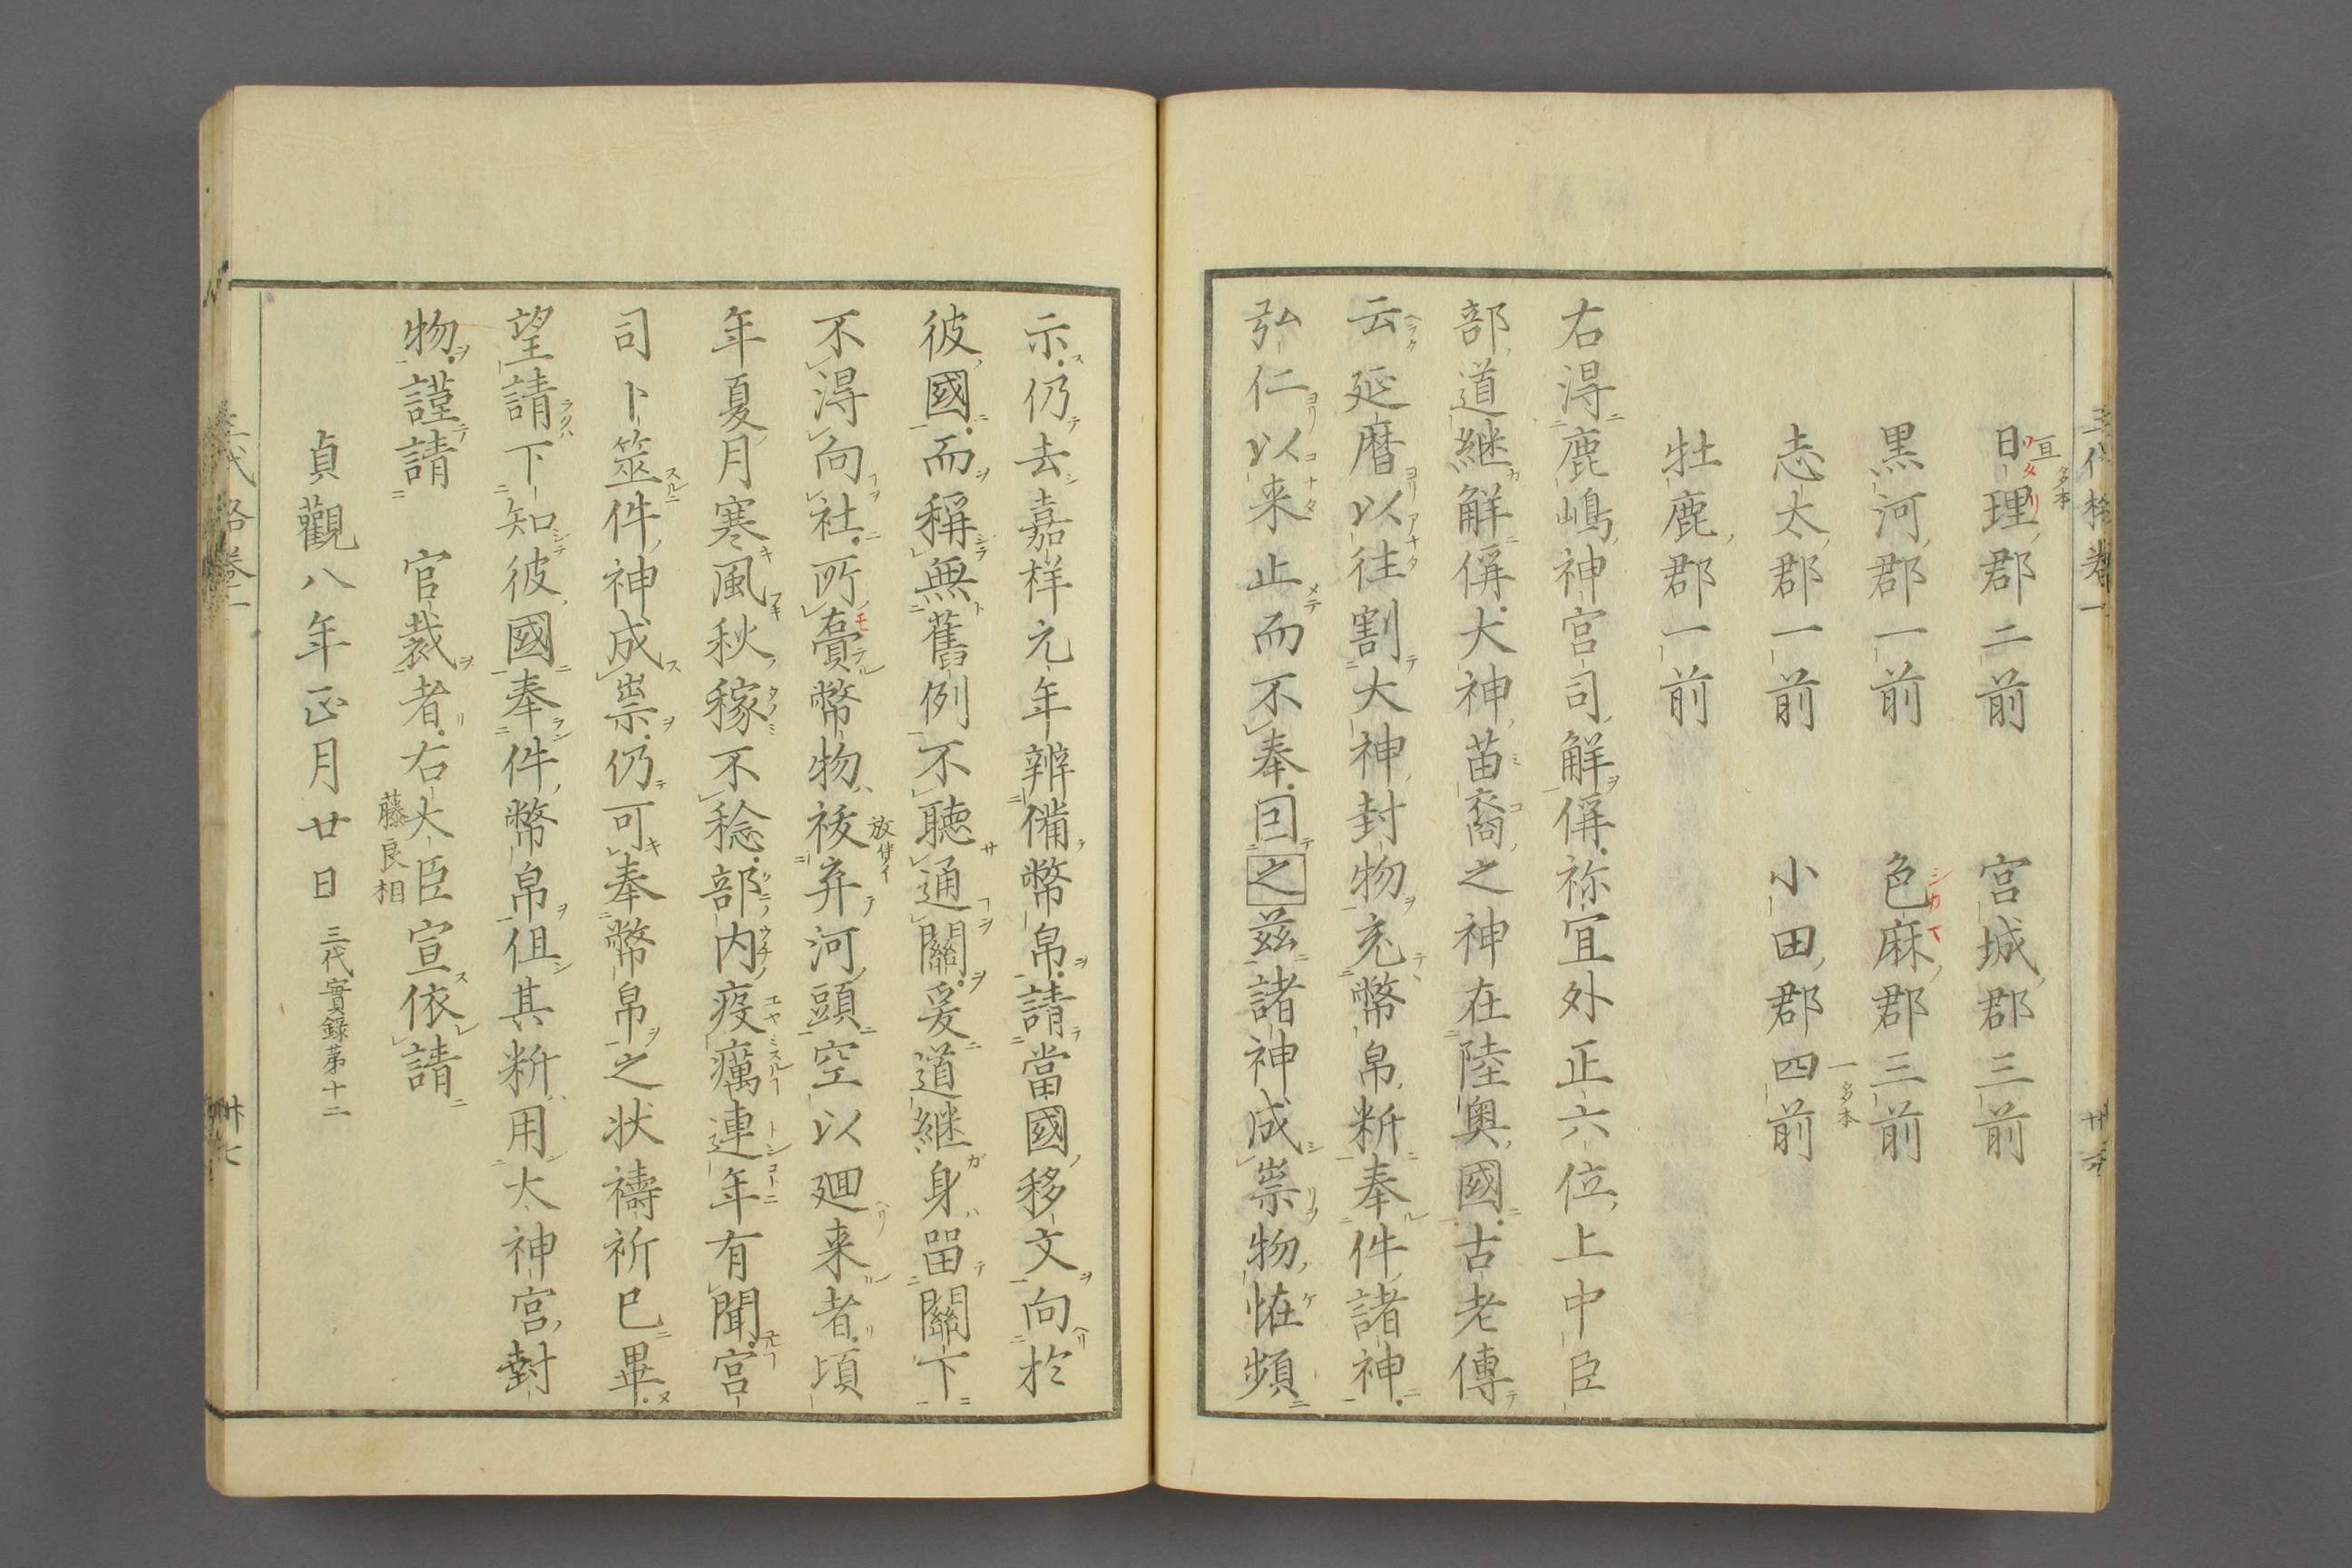 日理郡二前　宮城郡三前
黒河郡一前　色麻郡三前
志太郡一前　小田郡四前
牡鹿郡一前
右得鹿嶋神宮司解偁祢宜外正六位上中臣
部道継解偁大神苗裔之神在陸奥國古老傳
云延暦以往割大神封物充幣帛䉼奉件諸神
弘仁以来止而不奉囙之茲諸神成祟物恠頻
示仍去嘉祥元年辨備幣帛請當國移文向於
彼國而稱無舊例不聽通關爰道継身留關下
不得向社所賷幣物祓弃河頭空以廻来者頃
年夏月寒風秋稼不稔部内疫癘連年有聞宮
司卜筮件神成祟仍可奉幣帛之状禱祈已畢
望請下知彼國奉件幣帛但其䉼用大神宮封
物謹請　官裁者右大臣宣依請
藤良相
貞觀八年正月廿日　三代實録第十二